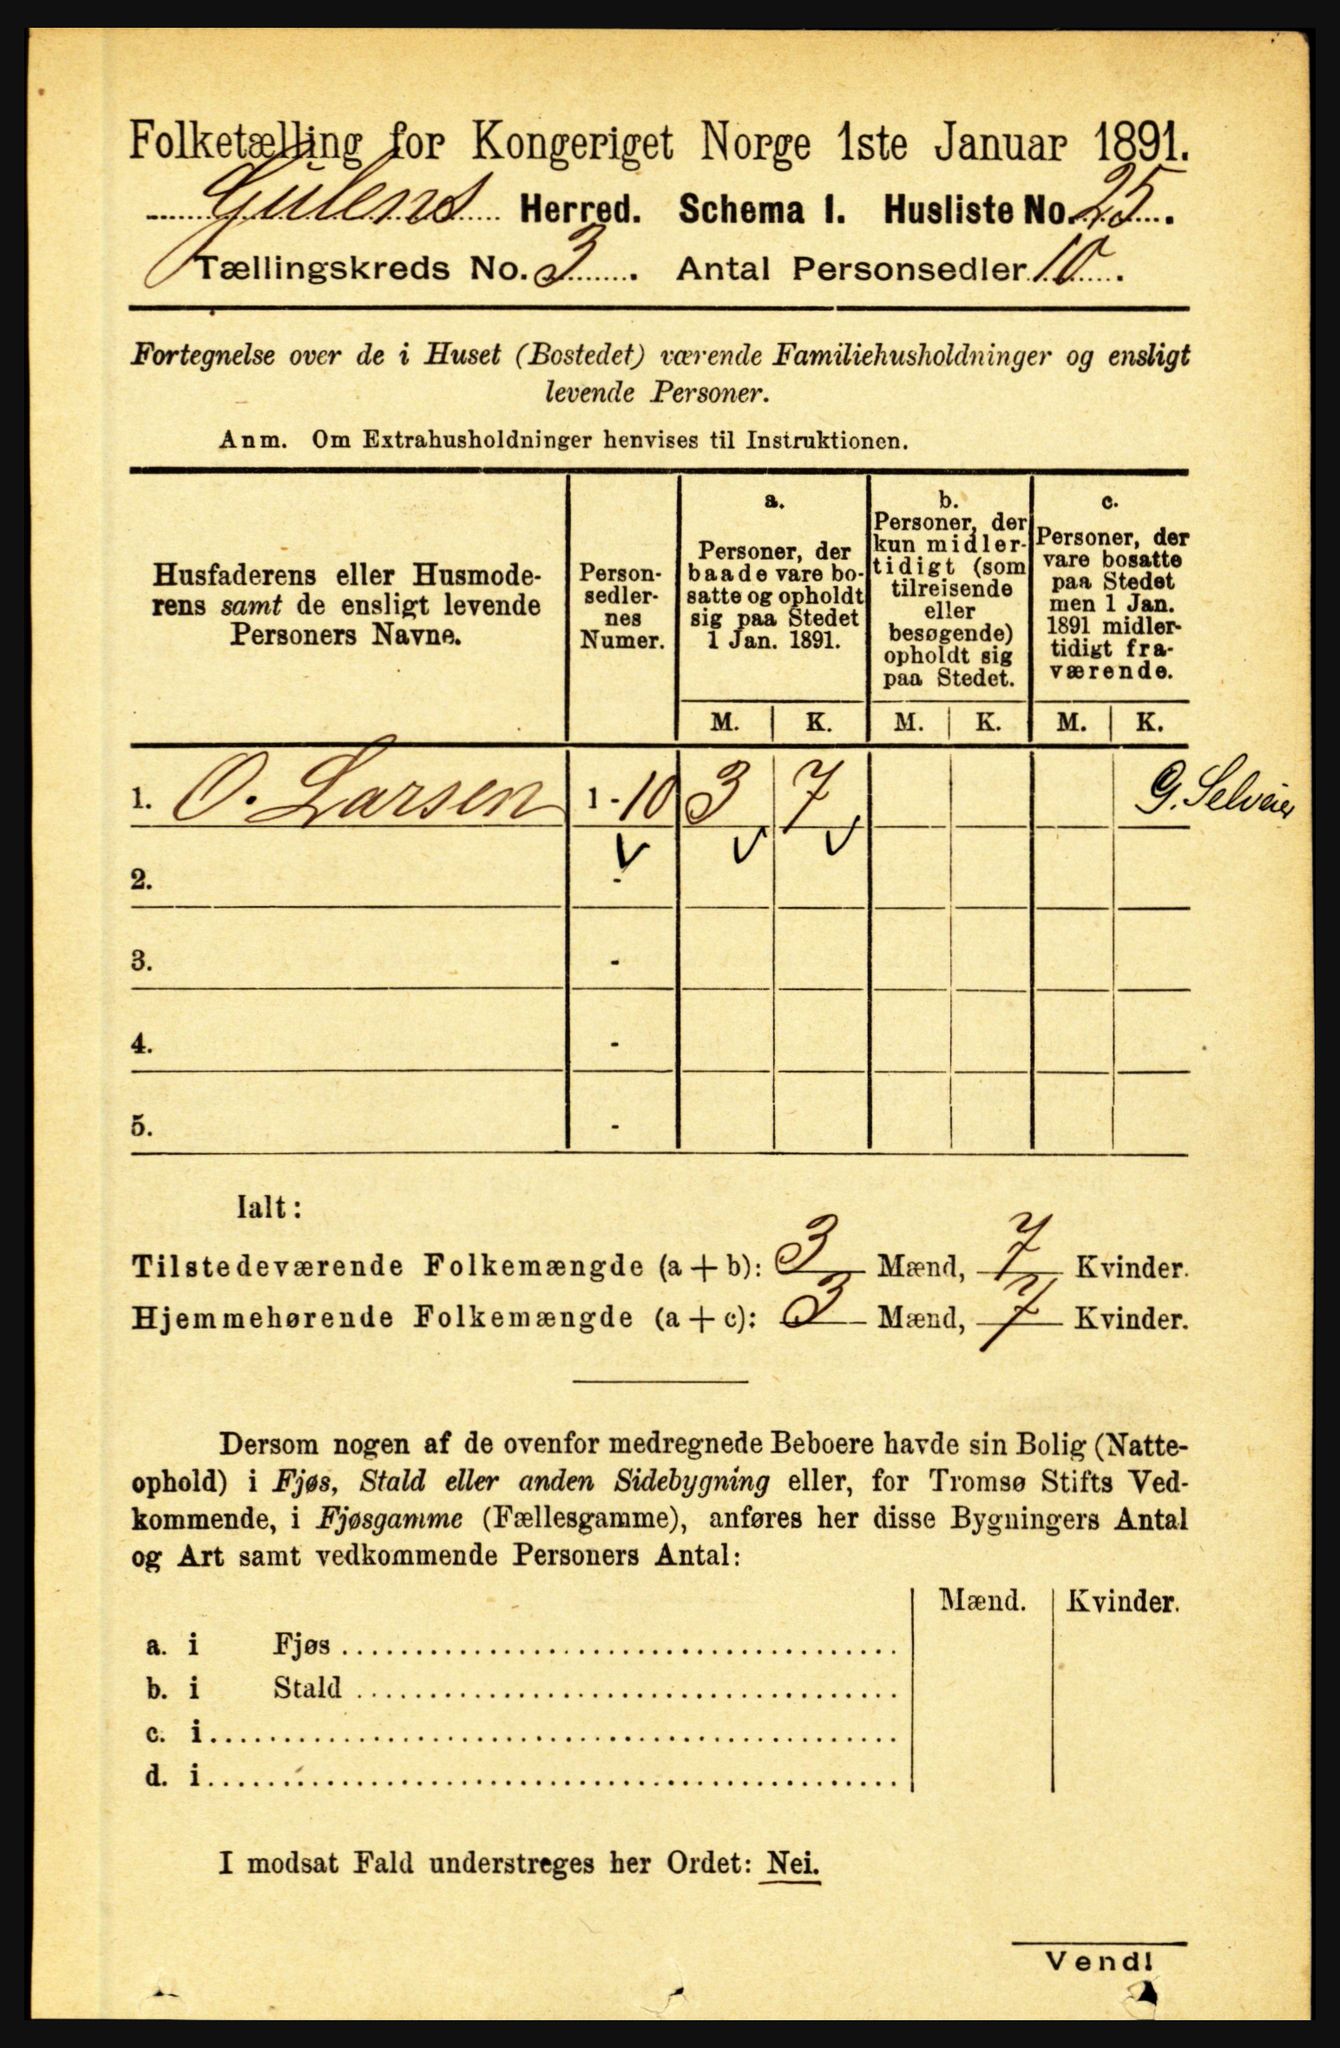 Folketælling for Kongeriget Norge 1ste Januar 1891.
Gulens Herred. Schema I. Husliste No. 25.
Tællingskreds No. 3. Antal Personsedler 10.
Fortegnelse over de i Huset (Bostedet) værende Familiehusholdninger og ensligt
levende Personer.
Anm. Om Extrahusholdninger henvises til Instruktionen.
Husfaderens eller Husmode-
rens samt de ensligt levende
Personers Navne.
Person-
sedler-
nes
Numer.
a.
Personer, der
baade vare bo-
satte og opholdt
sig paa Stedet
1 Jan. 1891.
b.
Personer, der
kun midler-
tidigt (som
tilreisende
eller
besøgende)
opholdt sig
paa Stedet.
c.
Personer, der
vare bosatte
paa Stedet
men 1 Jan.
1891 midler-
tidigt fra-
værende.
M. K. M. K. M. K.
1. O. Larsen 1 - 10 3 7 G. Selveier
2. -
3. -
4. -
5. -
Ialt:
Tilstedeværende Folkemængde (a + b): 3 Mænd, 7 Kvinder.
Hjemmehørende Folkemængde (a + c): 3 Mænd, 7 Kvinder.
Dersom nogen af de ovenfor medregnede Beboere havde sin Bolig (Natte-
ophold) i Fjøs, Stald eller anden Sidebygning eller, for Tromsø Stifts Ved-
kommende, i Fjøsgamme (Fællesgamme), anføres her disse Bygningers Antal
og Art samt vedkommende Personers Antal:
Mænd. Kvinder.
a. i Fjøs
b. i Stald
c. i
d. i
I modsat Fald understreges her Ordet: Nei.
Vend!